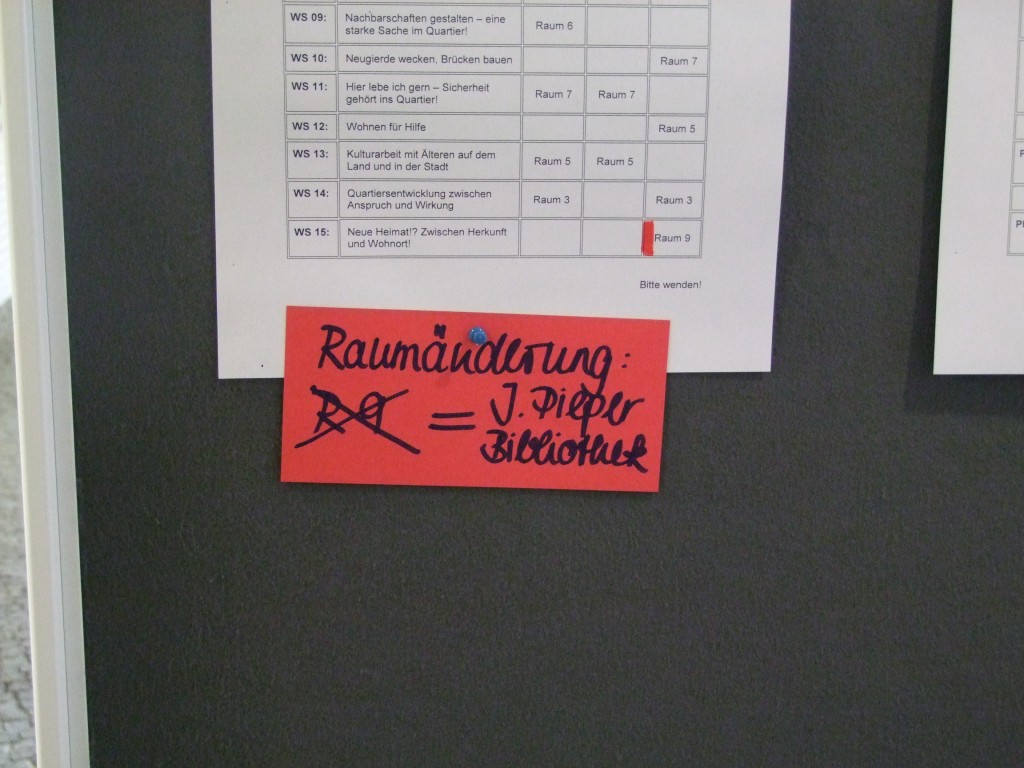 WS 09: Nachbarschaften gestalten – eine Raum 6
starke Sache im Quartier!
WS 10: Neugierde wecken, Brücken bauen Raum 7
WS 11: Hier lebe ich gern – Sicherheit Raum 7 Raum 7
gehört ins Quartier!
WS 12: Wohnen für Hilfe Raum 5
WS 13: Kulturarbeit mit Älteren auf dem Raum 5 Raum 5
Land und in der Stadt
WS 14: Quartiersentwicklung zwischen Raum 3 Raum 3
Anspruch und Wirkung
WS 15: Neue Heimat!? Zwischen Herkunft Raum 9
und Wohnort!
Bitte wenden!
Raumänderung:
R 9 = J. Pieper
Bibliothek